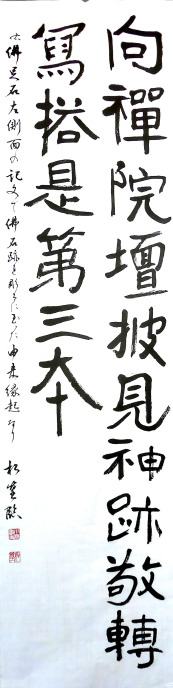 向禪院壇披見神跡敬轉
寫搭是第三本
佛足石左側面の記文で佛石跡を彫るに至った由来縁起なり
臨